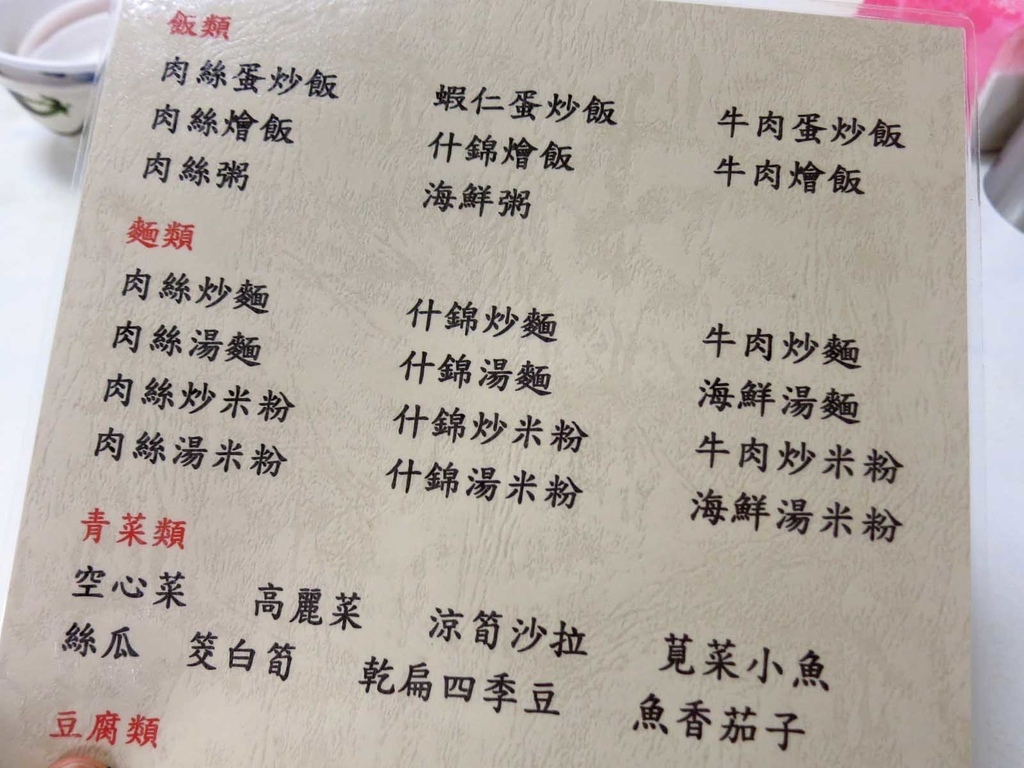 飯類
肉絲蛋炒飯 蝦仁蛋炒飯 牛肉蛋炒飯
肉絲燴飯 什錦燴飯 牛肉燴飯
肉絲粥 海鮮粥
麵類
肉絲炒麵 什錦炒麵 牛肉炒麵
肉絲湯麵 什錦湯麵 海鮮湯麵
肉絲炒米粉 什錦炒米粉 牛肉炒米粉
肉絲湯米粉 什錦湯米粉 海鮮湯米粉
青菜類
空心菜 高麗菜 涼筍沙拉 莧菜小魚
絲瓜 筊白筍 乾扁四季豆 魚香茄子
豆腐類